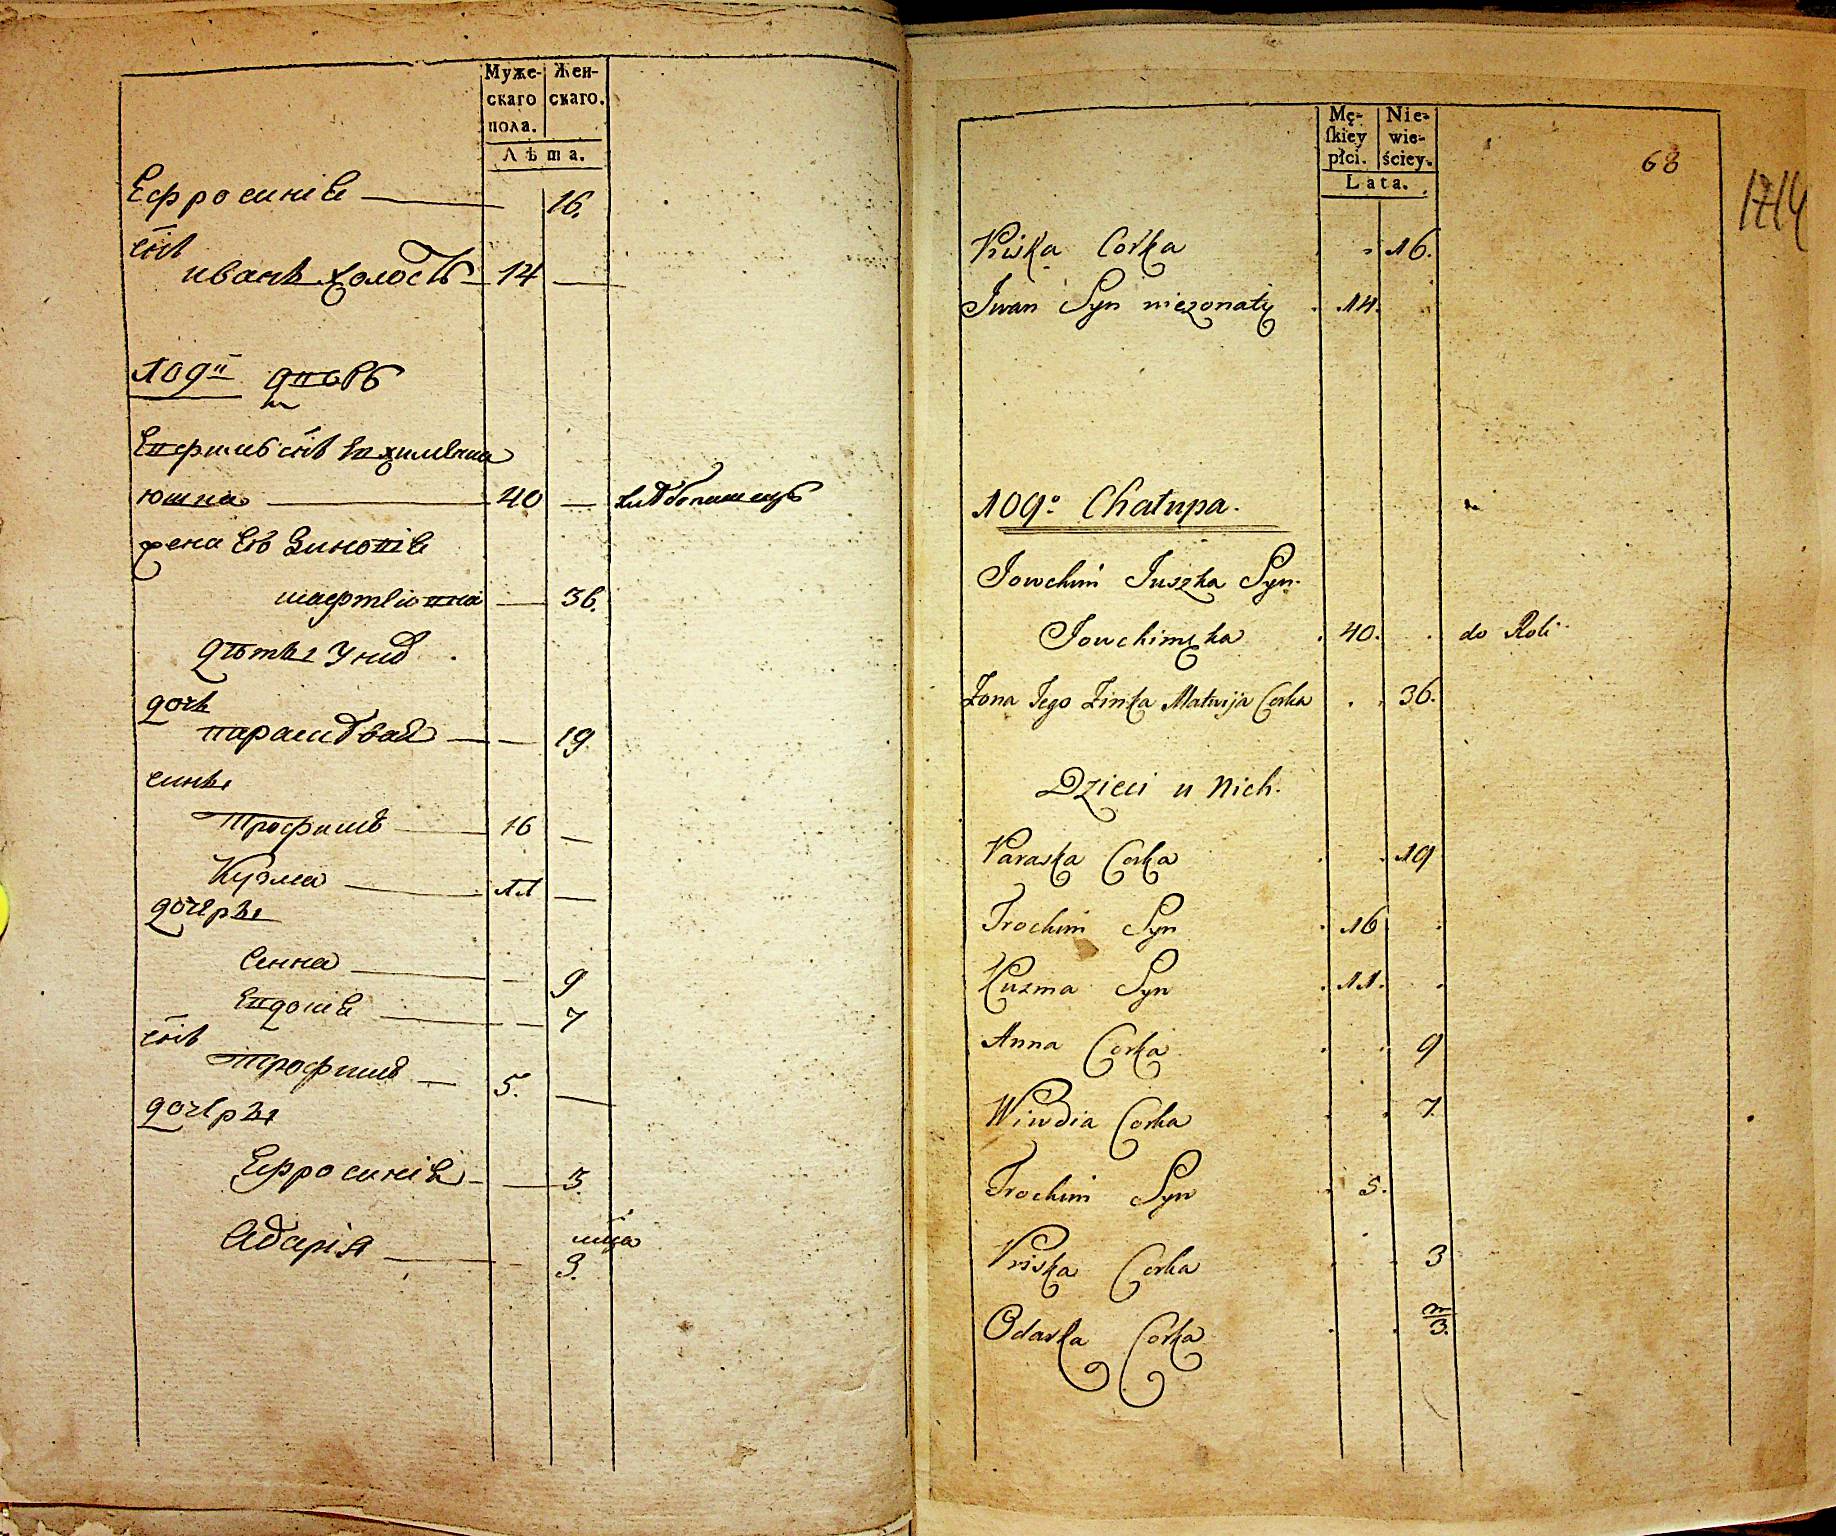 Муже-
скаго
пола.
Жен-
скаго.
Лѣта.
Ефросиніе 16.
снъ
иванъ холостъ 14
109й дворъ
Евфимъ снъ
юшка 40 хлѣбопашецъ
жена его Зиновіе
матвіювна 36.
дѣти у нихъ
дочь
парасковая 19
сины
Трофимъ 16
Кузма 11
дочеры
Анна 9
Евдокіе 7
снъ
трофимъ 5.
дочеры
Ефросиніе 3.
Одарія мца 3.
Mę-
ſkiey
płci.
Nie-
wie-
ściey.
Lata.
68
1714
Priska Corka 16.
Jwan Syn niezonaty 14.
109o Chałupa.
Jowchim Juszka Syn.
Jowchimska 40. do Roli
Żona Jego Zinka Matwija Corka 36.
Dzieci u Nich.
Paraska Corka 19
Trochim Syn 16
Kuzma Syn 11.
Anna Corka 9
Wiwdia Corka 7.
Trochim Syn 5.
Priska Corka 3
Odarka Corka m/3.